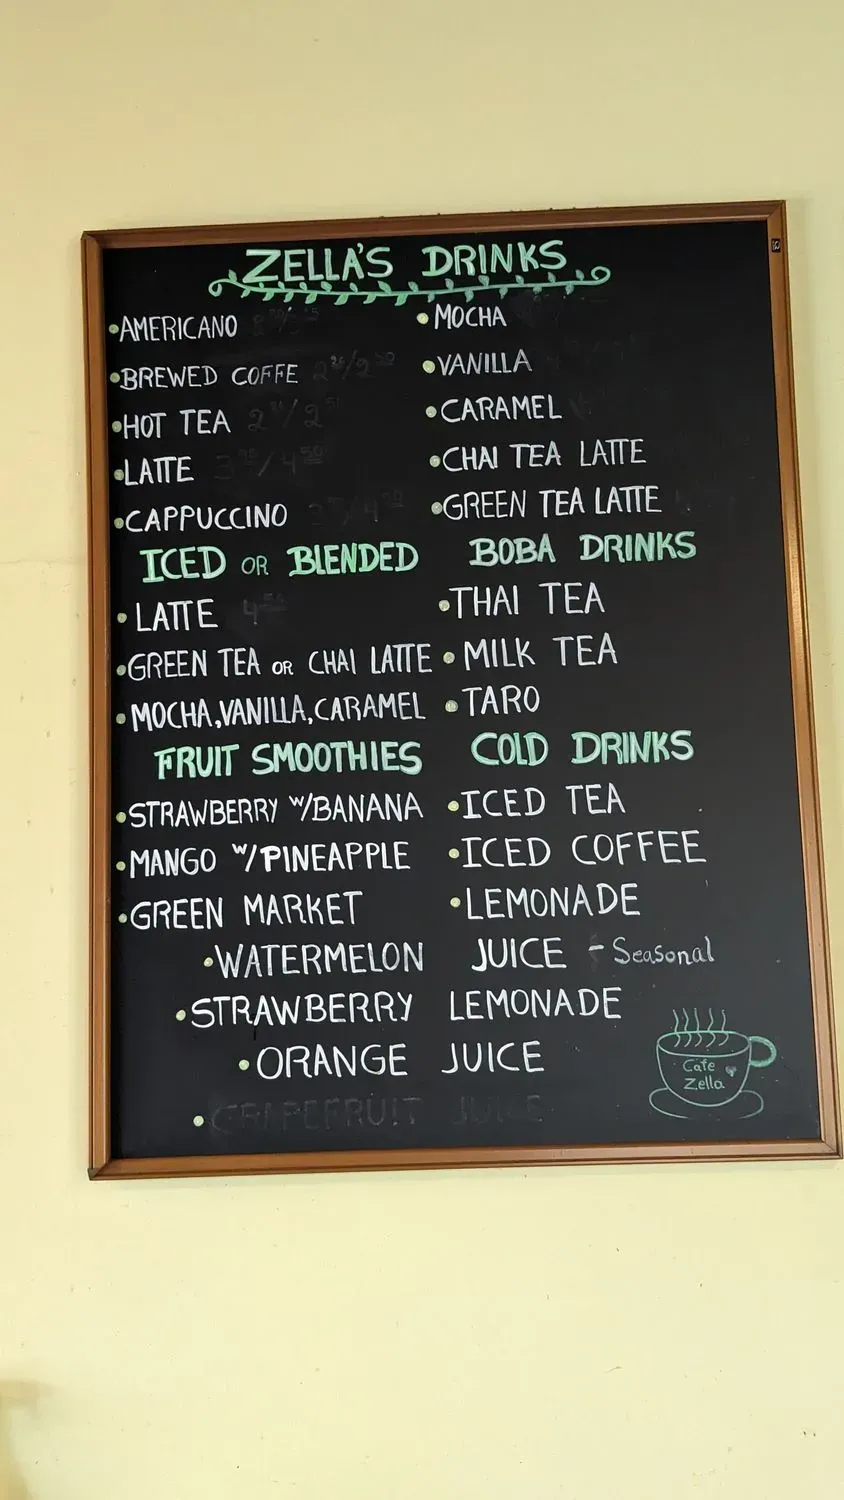 ZELLA'S DRINKS
•AMERICANO
•BREWED COFFE
•HOT TEA
•LATTE
•CAPPUCCINO
•MOCHA
•VANILLA
•CARAMEL
•CHAI TEA LATTE
•GREEN TEA LATTE
ICED OR BLENDED
•LATTE
•GREEN TEA OR CHAI LATTE
•MOCHA, VANILLA, CARAMEL
BOBA DRINKS
•THAI TEA
•MILK TEA
•TARO
FRUIT SMOOTHIES
•STRAWBERRY W/BANANA
•MANGO W/PINEAPPLE
•GREEN MARKET
COLD DRINKS
•ICED TEA
•ICED COFFEE
•LEMONADE
•WATERMELON JUICE - Seasonal
•STRAWBERRY LEMONADE
•ORANGE JUICE
•GRAPEFRUIT JUICE
Cafe
Zella